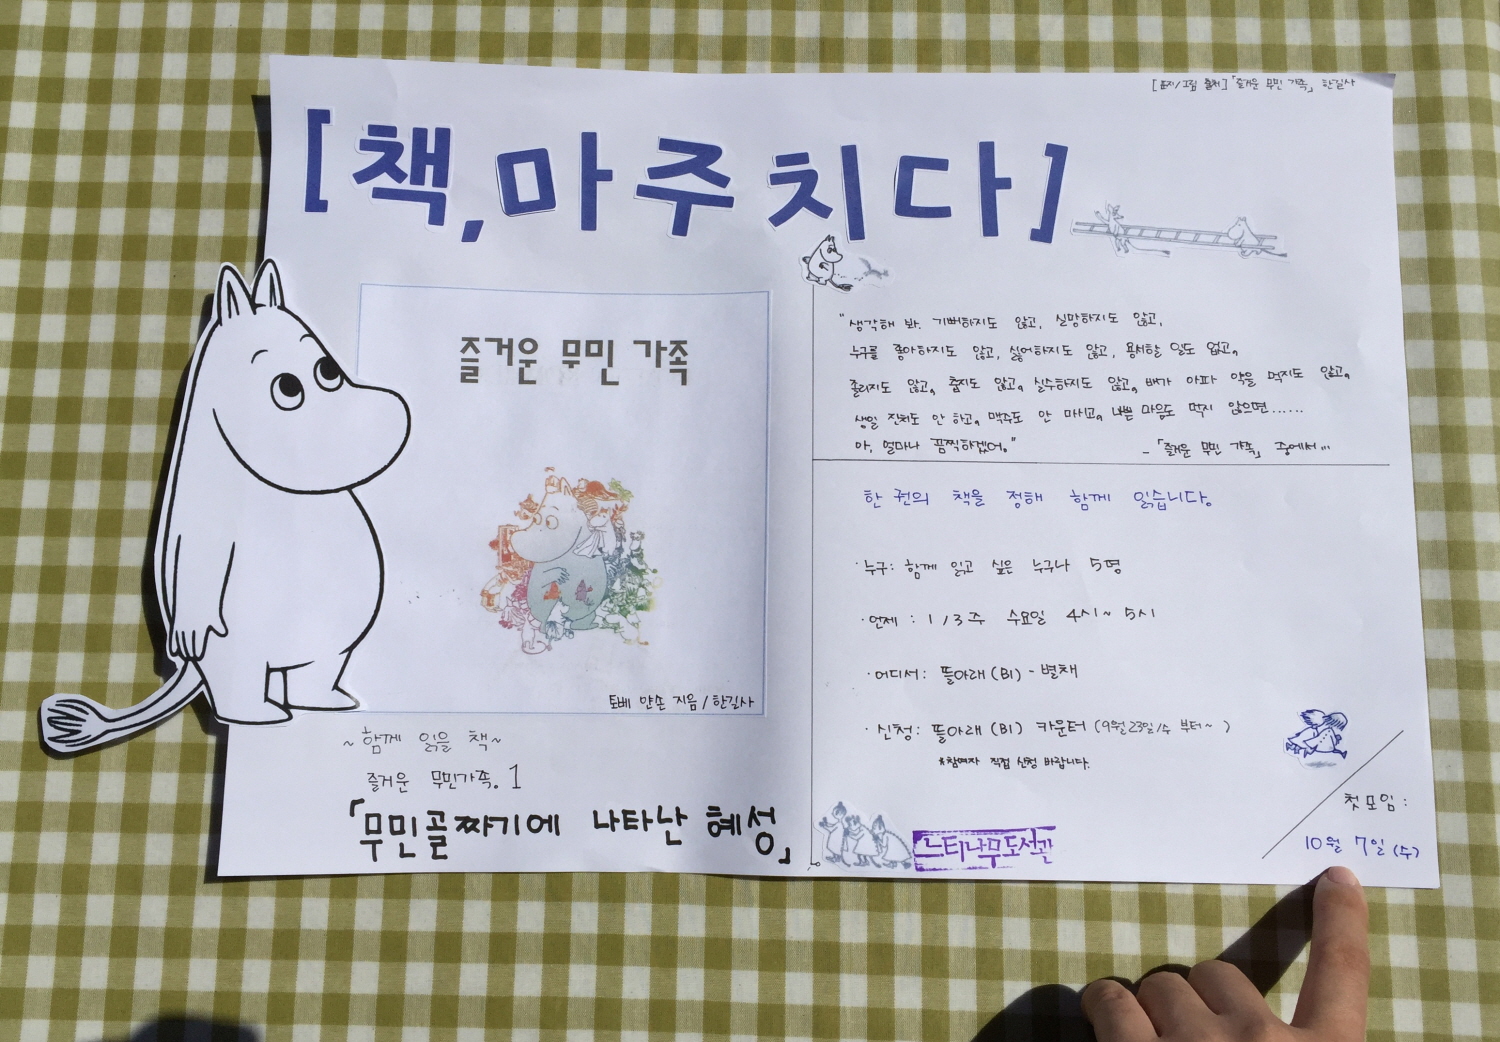 [폰트/그림 출처]「즐거운 무민 가족」 한길사
[책, 마주치다]
즐거운 무민 가족
토베 얀손 지음/한길사
~함께 읽을 책~
즐거운 무민가족. 1
「무민골짜기에 나타난 혜성」
"생각해 봐. 기뻐하지도 않고, 실망하지도 않고,
누구를 좋아하지도 않고, 싫어하지도 않고, 용서할 일도 없고,
졸리지도 않고, 춥지도 않고, 실수하지도 않고, 배가 아파 약을 먹지도 않고,
생일 잔치도 안 하고, 맥주도 안 마시고, 나쁜 마음도 먹지 않으면......
아, 얼마나 끔찍하겠어."
-「즐거운 무민 가족」 중에서...
한 권의 책을 정해 함께 읽습니다.
·누구: 함께 읽고 싶은 누구나 5명
·언제: 1/3주 수요일 4시~5시
·어디서: 뜰아래(B1)-별채
·신청: 뜰아래(B1) 카운터 (9월23일/수 부터~)
*참여자 직접 신청 바랍니다.
느티나무도서관
첫모임:
10월 7일(수)